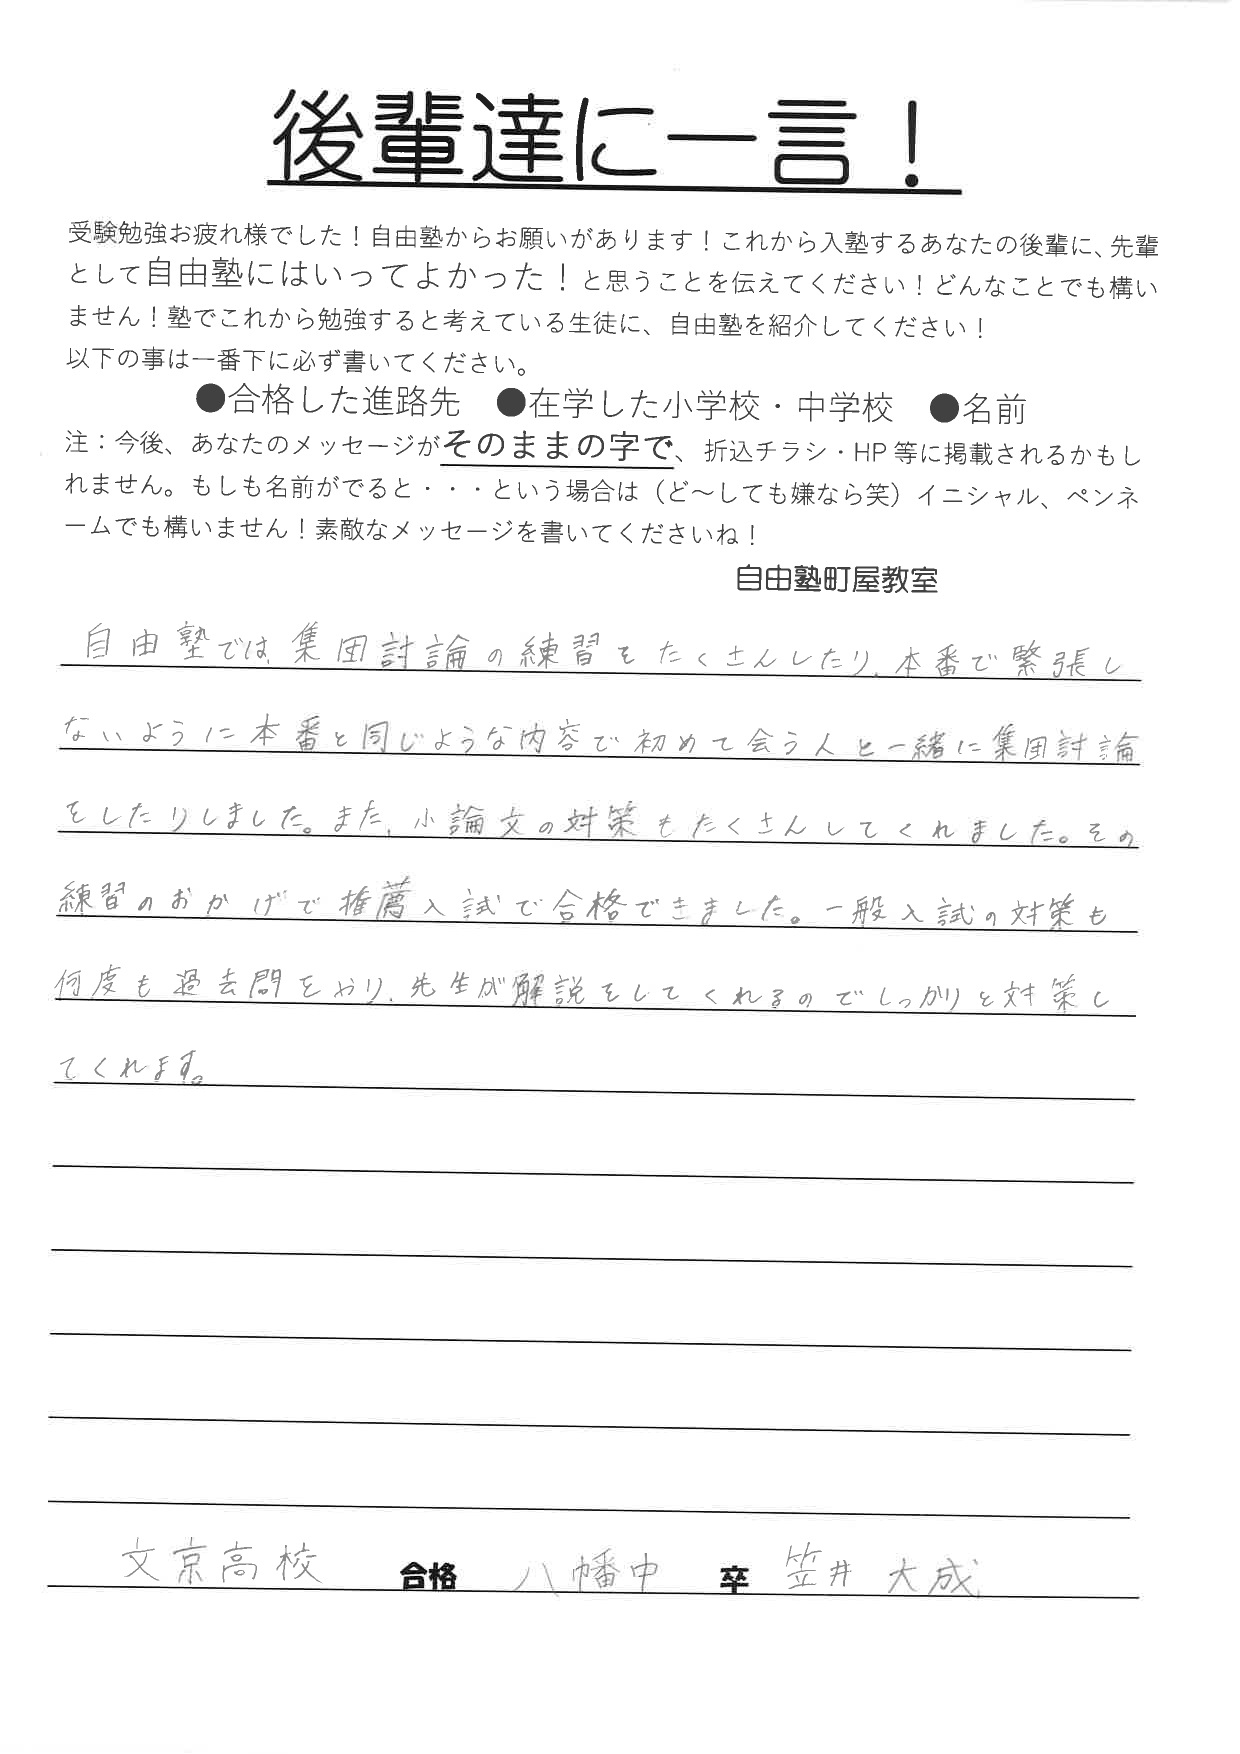 後輩達に一言！
受験勉強お疲れ様でした！自由塾からお願いがあります！これから入塾するあなたの後輩に、先輩
として自由塾にはいってよかった！と思うことを伝えてください！どんなことでも構い
ません！塾でこれから勉強すると考えている生徒に、自由塾を紹介してください！
以下の事は一番下に必ず書いてください。
●合格した進路先　●在学した小学校・中学校　●名前
注：今後、あなたのメッセージがそのままの字で、折込チラシ・HP等に掲載されるかもし
れません。もしも名前がでると・・・という場合は（ど～しても嫌なら笑）イニシャル、ペンネ
ームでも構いません！素敵なメッセージを書いてくださいね！
自由塾町屋教室
自由塾では、集団討論の練習をたくさんしたり、本番で緊張し
ないように本番と同じような内容で初めて会う人と一緒に集団討論
をしたりしました。また、小論文の対策もたくさんしてくれました。その
練習のおかげで推薦入試で合格できました。一般入試の対策も
何度も過去問をやり、先生が解説をしてくれるのでしっかりと対策し
てくれます。
文京高校　合格　八幡中　卒　笠井 大成